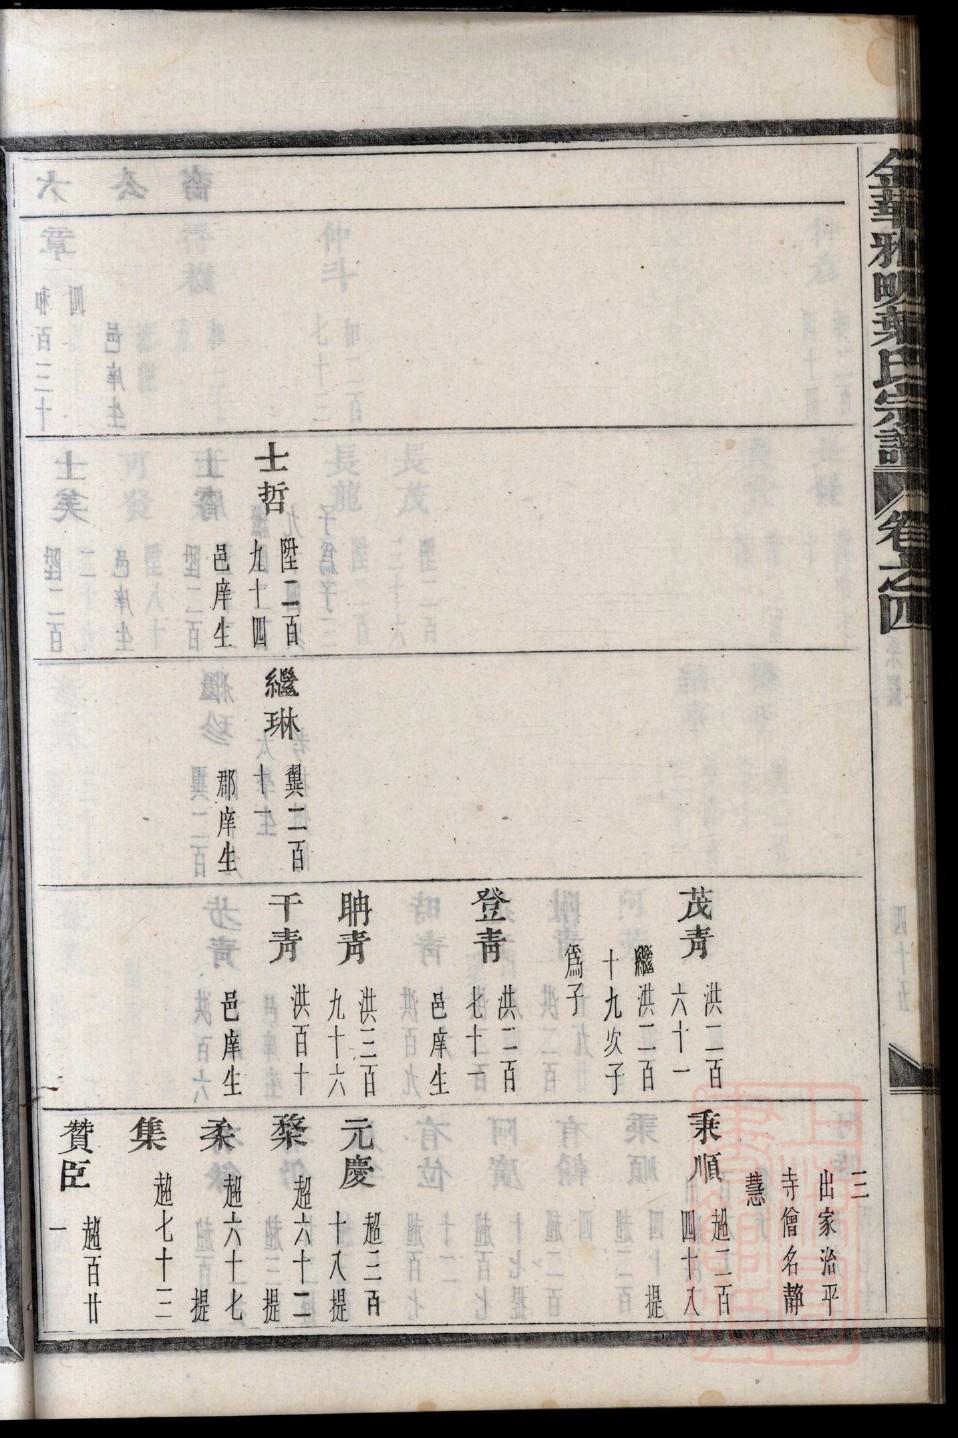 金華雅明葉氏宗譜
卷之四
士哲
陞二百
九十四
邑庠生
繼琳
翼二百
十一
郡庠生
茂青
洪二百
六十一
繼洪二百
十九次子
爲子
登青
洪二百
七十一
邑庠生
聃青
洪三百
九十六
干青
洪百十
邑庠生
三
出家治平
寺僧名靜
慧
秉順
趙二百
四十八
提
元慶
趙三百
十八提
棃
趙六十二
提
柔
趙六十七
提
集
趙七十三
贊臣
趙百廿
一